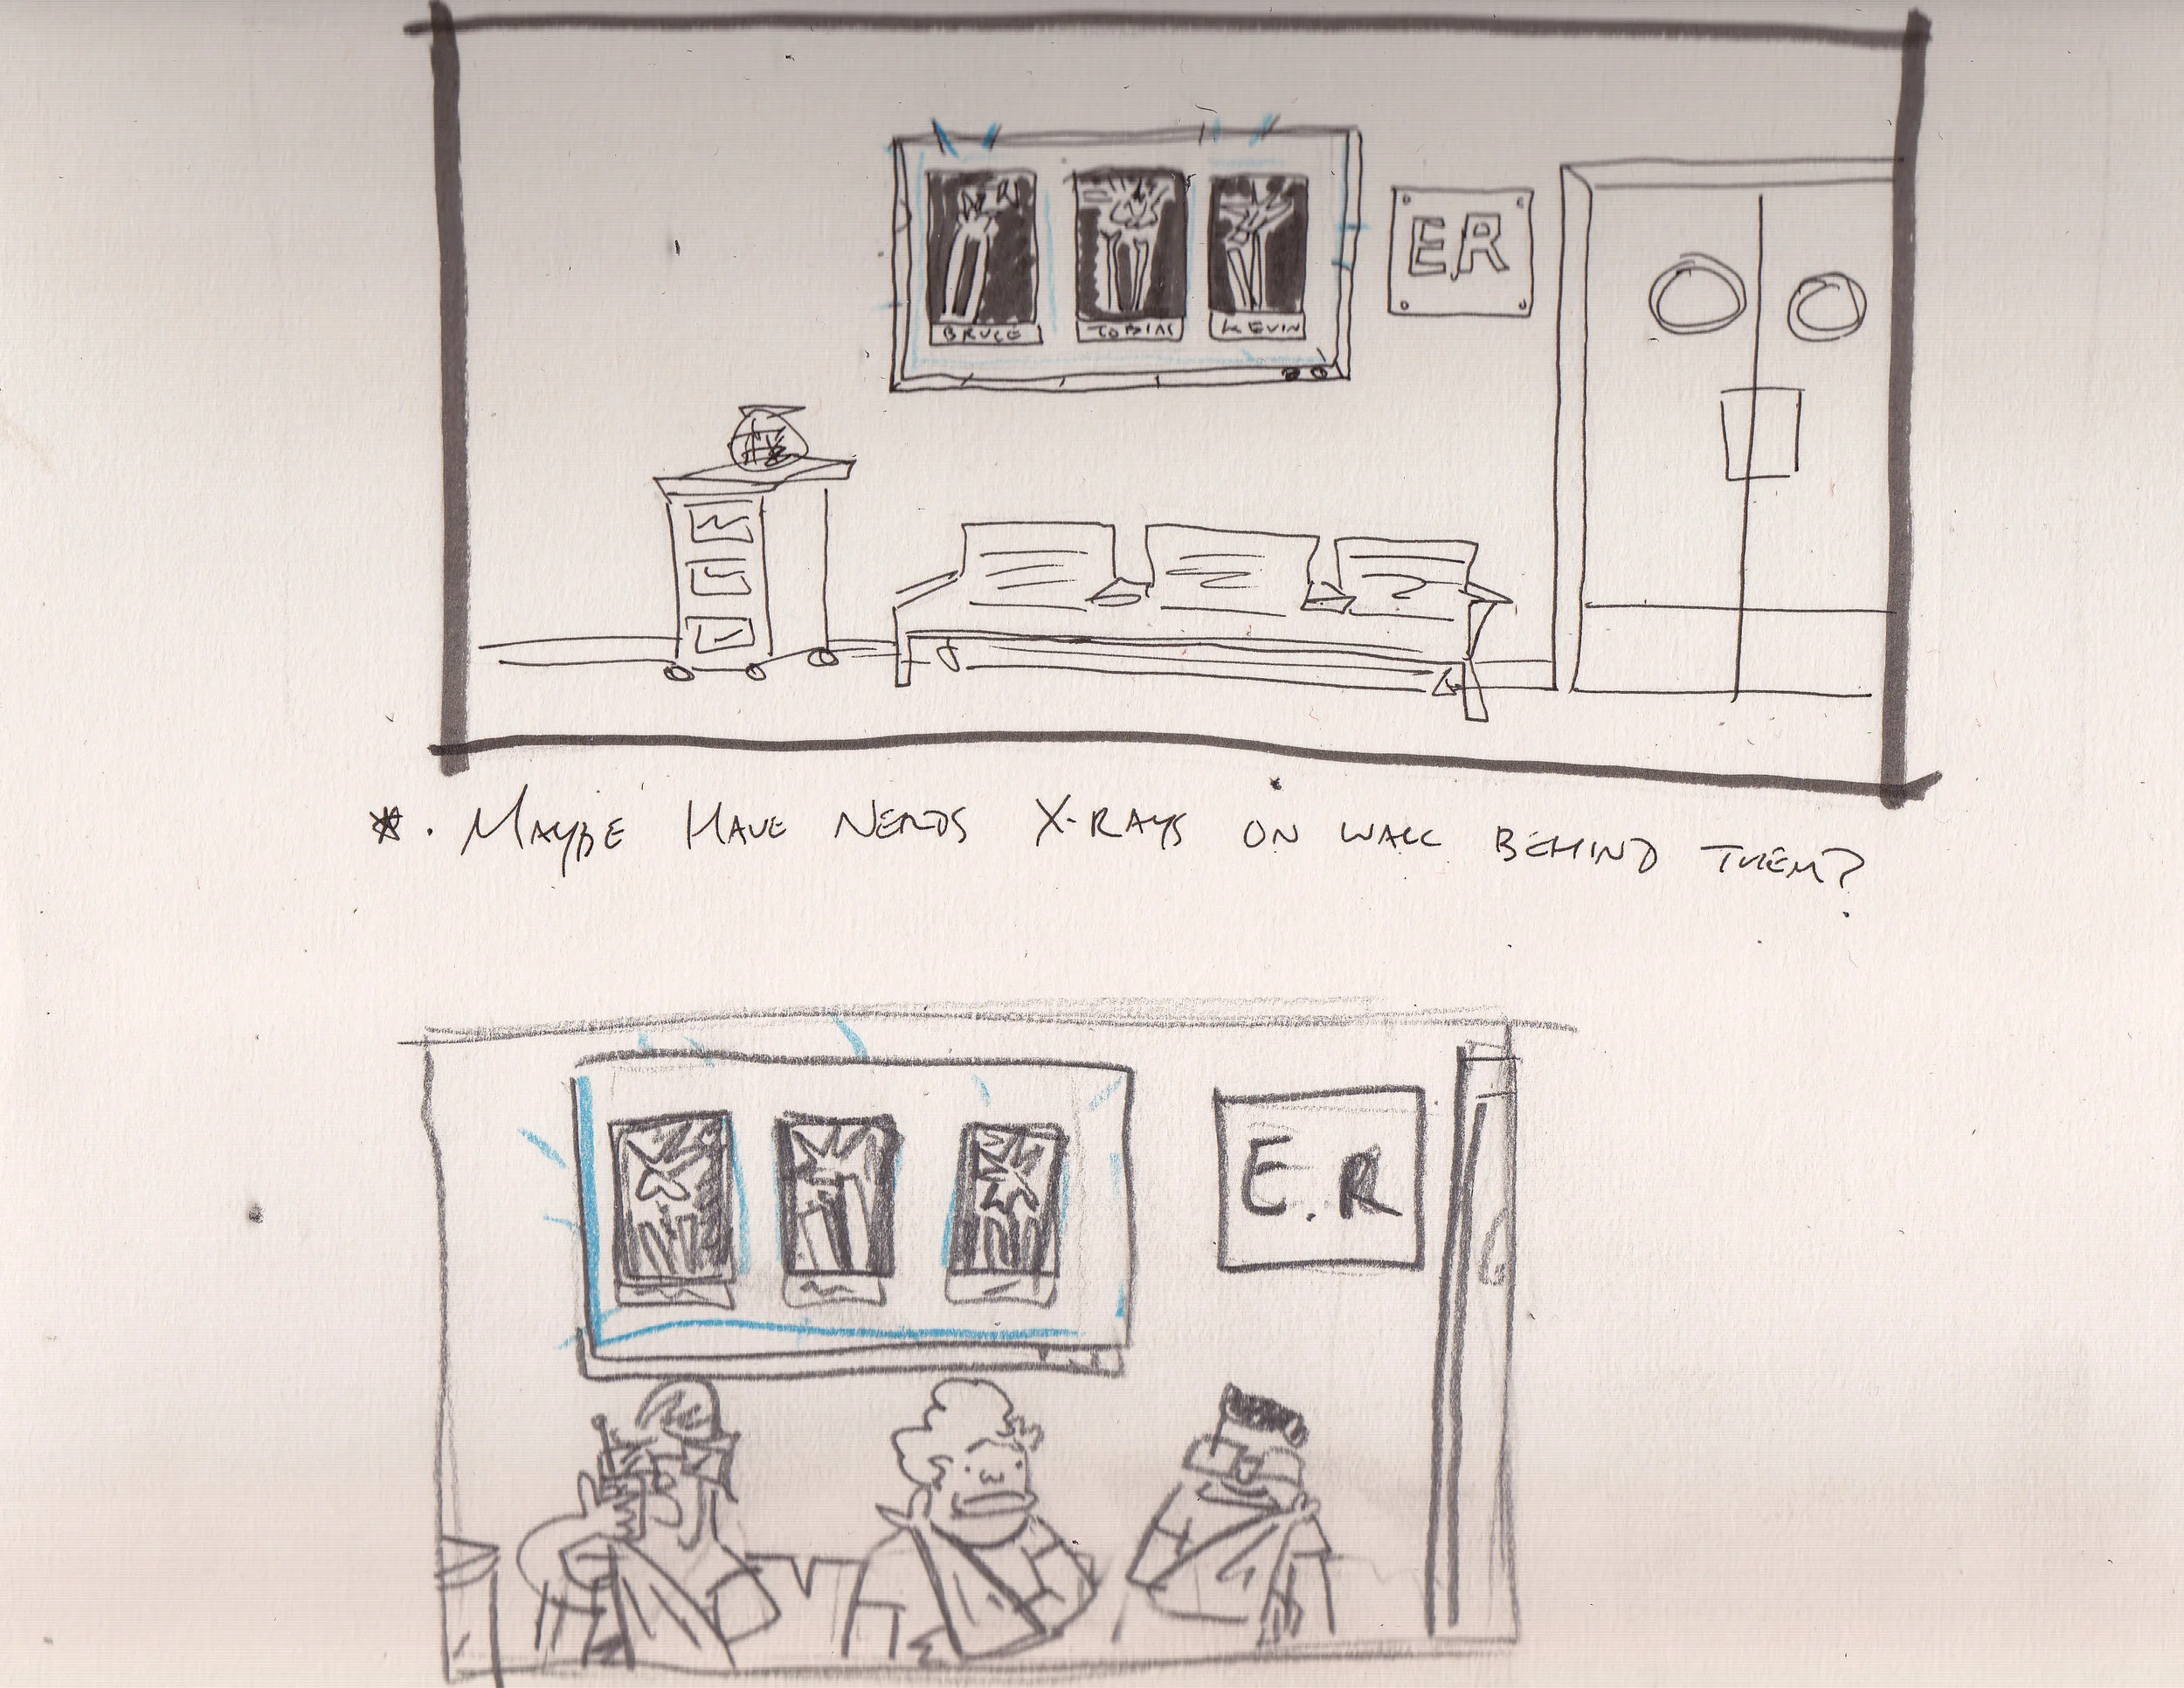 ER
BRUCE TOBIAS KEVIN
*. MAYBE HAVE NERDS X-RAYS ON WALL BEHIND THEM?
E.R